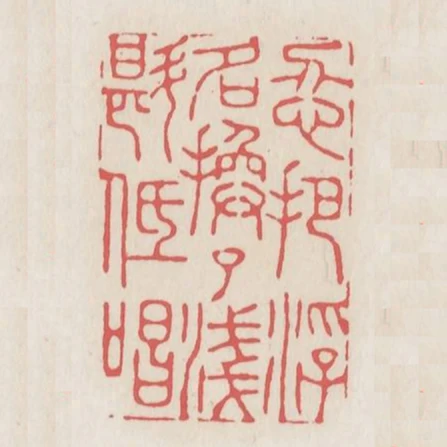 忍把浮
名換了淺
斟低唱